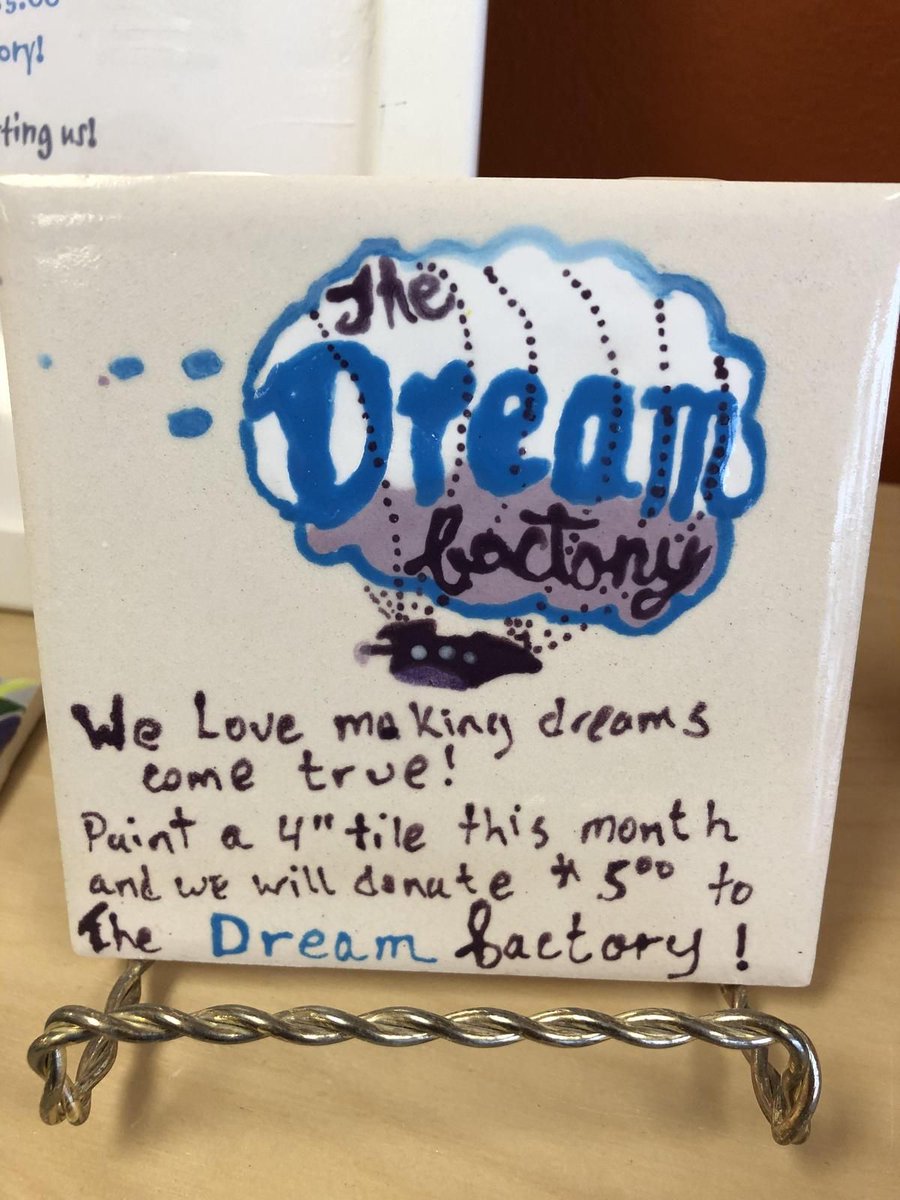 5.00
ory!
ting us!
The
Dream
factory
We Love making dreams
come true!
Paint a 4" tile this month
and we will donate $ 5⁰⁰ to
The Dream factory!